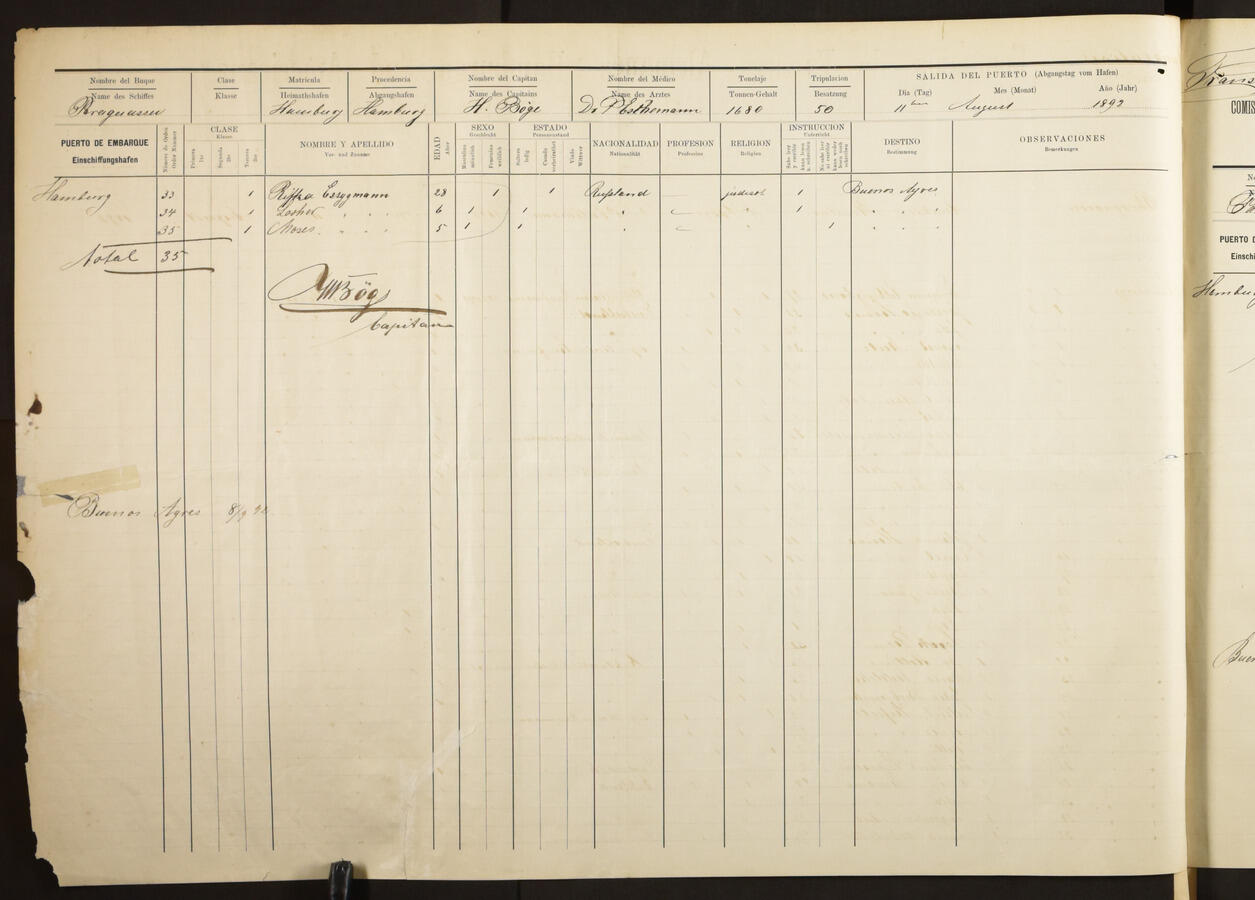 Nombre del Buque Clase Matricula Procedencia Nombre del Capitan Nombre del Médico Tonelaje Tripulacion SALIDA DEL PUERTO (Abgangstag vom Hafen)
Name des Schiffes Klasse Heimathshafen Abgangshafen Name des Capitains Name des Arztes Tonnen-Gehalt Besatzung Dia (Tag) Mes (Monat) Año (Jahr)
Hamburg Hamburg H. Böge Dr 1680 50 11ten August 1892
PUERTO DE EMBARQUE
Einschiffungshafen
Número de Orden
Order Nummer
CLASE
Klasse
Primera
Segunda
Tercera
NOMBRE Y APELLIDO
Vor- und Zuname
EDAD
Alter
SEXO
Geschlecht
Masculino
männlich
Femenino
weiblich
ESTADO
Personenstand
Soltero
ledig
Casado
verheirathet
Viudo
Wittwer
NACIONALIDAD
Nationalität
PROFESION
Profession
RELIGION
Religion
INSTRUCCION
Unterricht
Sabe leer y escribir
kann lesen u. schreiben
No sabe leer ni escribir
kann weder lesen noch schreiben
DESTINO
Bestimmung
OBSERVACIONES
Bemerkungen
Hamburg 33 1 28 1 1 Rußland jüdisch 1 Buenos Ayres
34 1 " " " 6 1 1 " " 1 " " "
35 1 Moses " " " 5 1 1 " " 1 " " "
Total 35
Böge
Capitan
Buenos Ayres 8/9 92
Trans
COMIS
PUERTO D
Einschi
Hambur
Buen